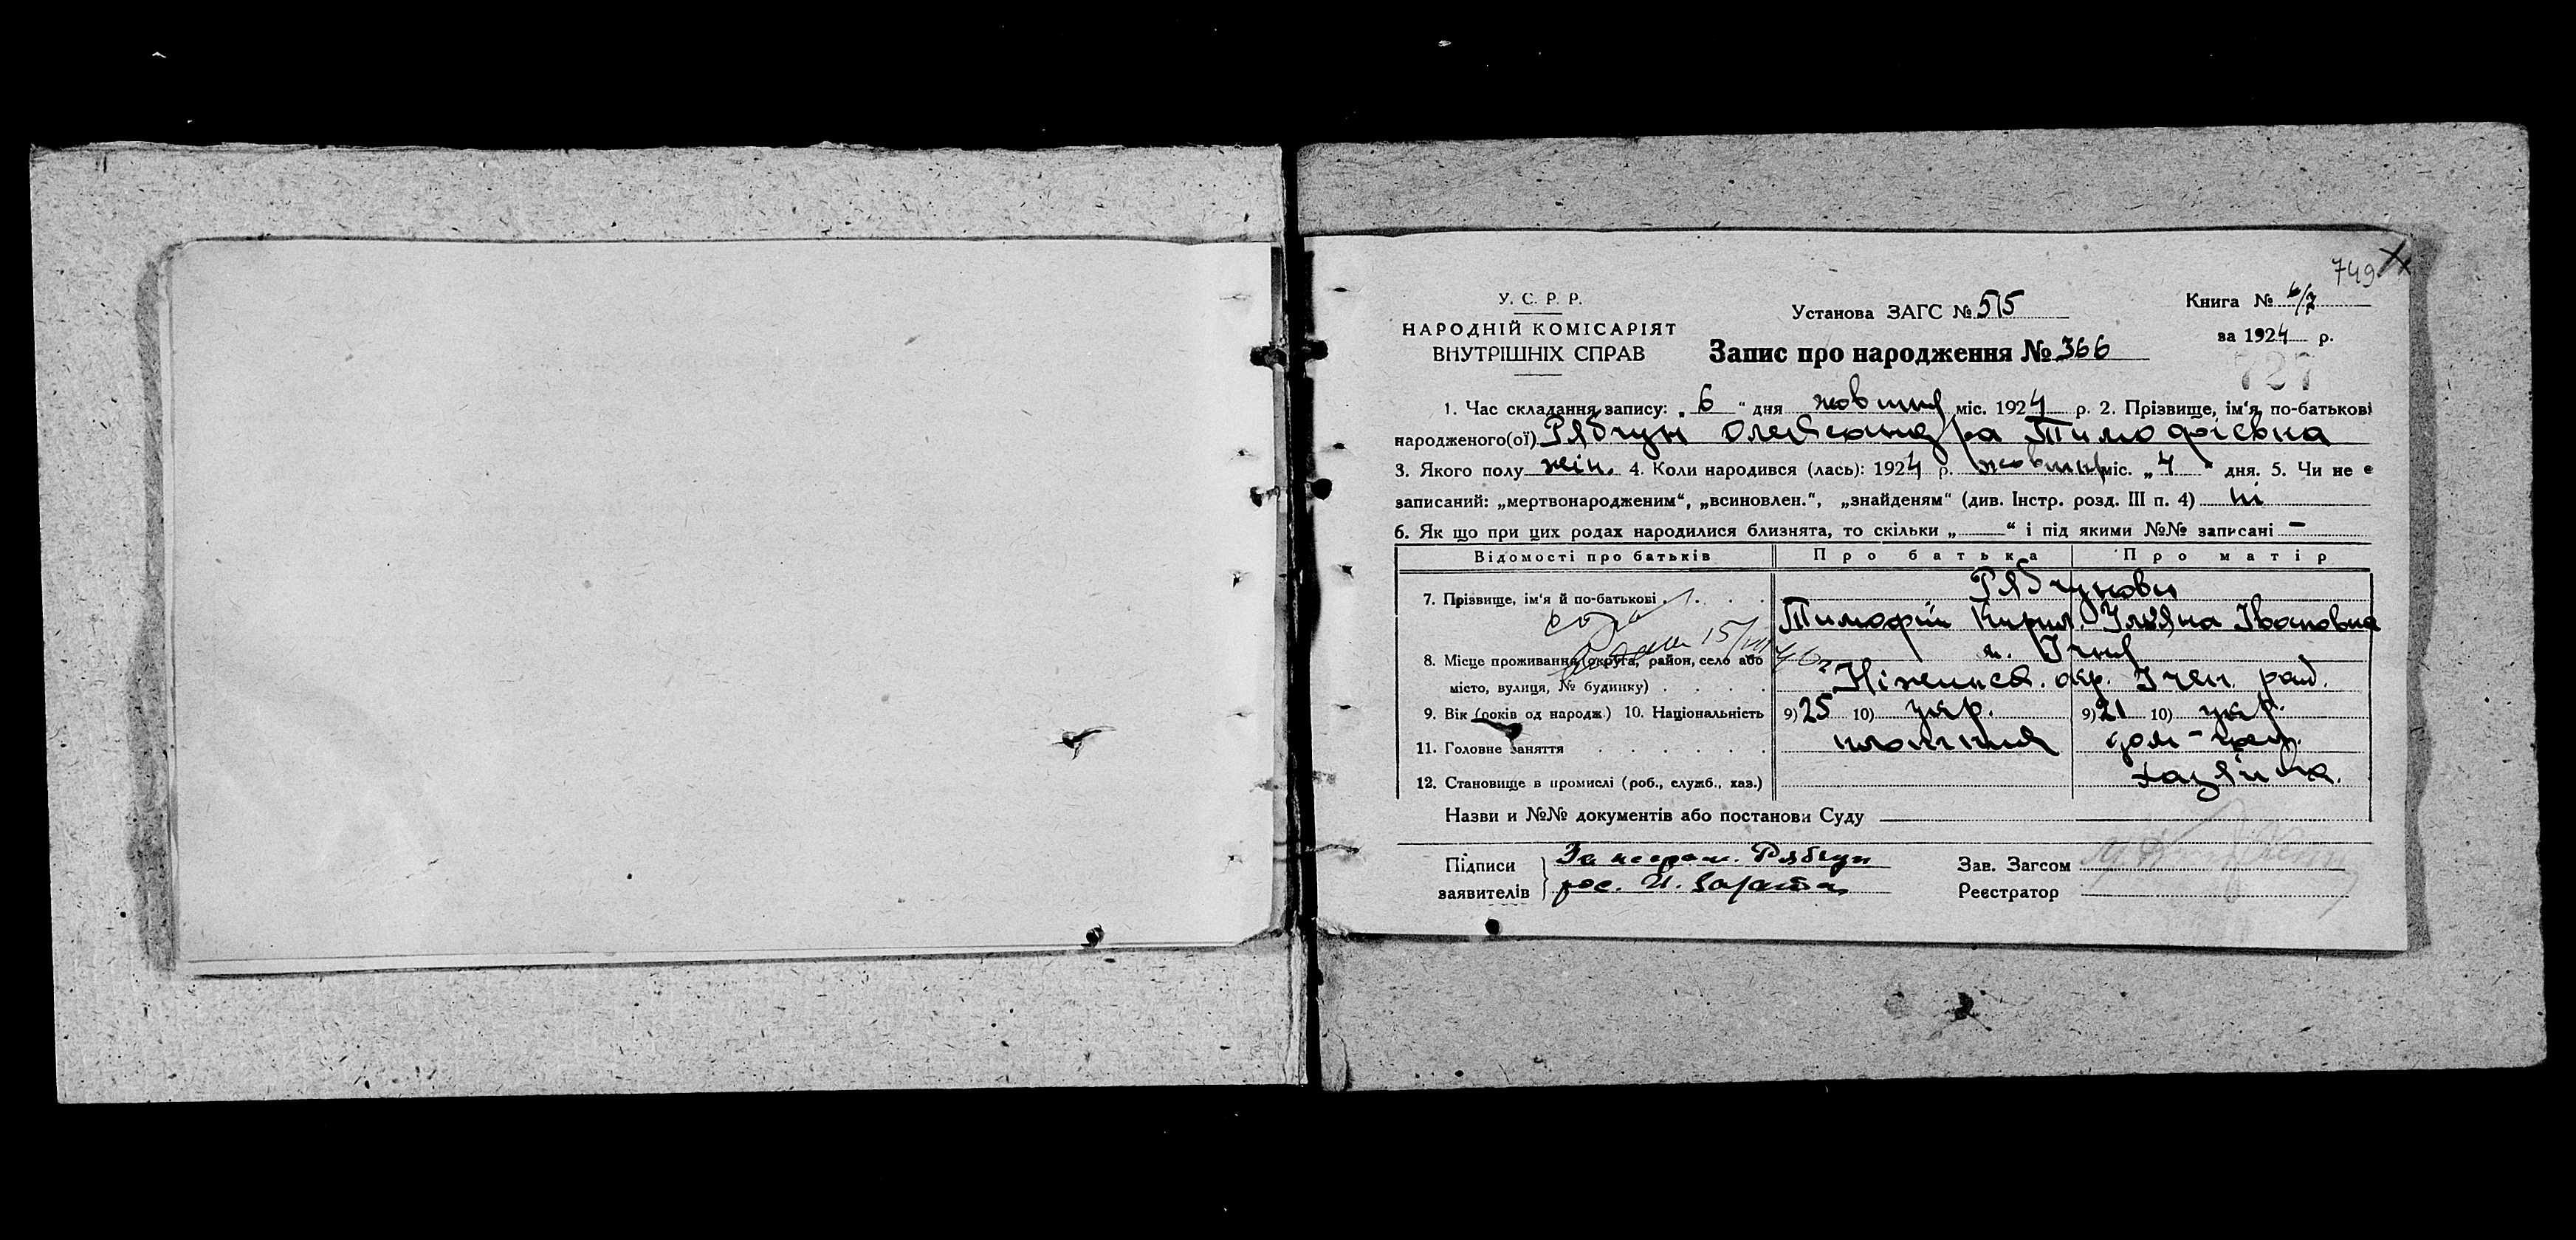 749
У. С. Р. Р.
НАРОДНІЙ КОМІСАРІЯТ
ВНУТРІШНІХ СПРАВ
Установа ЗАГС № 515
Книга № 6/7
за 1924 р.
Запис про народження № 366
727
1. Час складання запису: „ 6 “ дня жовтня міс. 1924 р. 2. Прізвище, ім'я, по-батькові
народженого(ої) Рябчун Олександра Тимофієвна
3. Якого полу жін. 4. Коли народився (лась): 1924 р. жовтня міс. „ 4 “ дня. 5. Чи не є
записаний: „мертвонародженим“, „всиновлен.“, „знайденям“ (див. Інстр. розд. III п. 4) ні
6. Як що при цих родах народилися близнята, то скільки „ “ і під якими №№ записані —
Відомості про батьків Про батька Про матір
Рябчунови
7. Прізвище, ім'я й по-батькові Тимофій Кирил. Уляна Івановна
15/VIII 46г
8. Місце проживання (округа, район, село або м. Ічня
місто, вулиця, № будинку) Ніженськ. окр. Ічен. рай.
9. Вік (років од народж.) 10. Національність 9) 25 10) укр. 9) 21 10) укр.
11. Головне заняття дом-
12. Становище в промислі (роб., служб., хаз.) хазяйка.
Назви и №№ документів або постанови Суду
Підписи За неграм. Рябчун
заявителів рос.
Зав. Загсом
Реєстратор